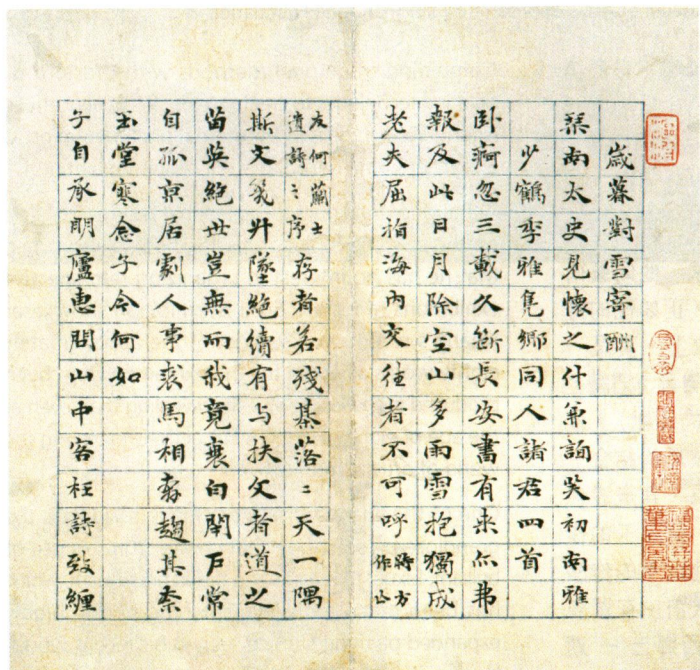 歲暮對雪寄酬
琴南太史見懷之什兼詢笑初南雅
少鶴季雅隽卿同人諸君四首
卧痾忽三載久斷長安書有来亦弗
報及此日月除空山多雨雪抱獨成
老夫屈指海內交往者不可呼時方作亡
友何蘭士遺詩〻序存者若殘棊落〻天一隅
斯文幾升墜絕續有与扶文者道之
苗英絕世豈無而我竟衰白閉户常
自孤京居劇人事裘馬相奔趨其柰
玉堂寒念子今何如
子自承明廬惠問山中客枉詩致纏